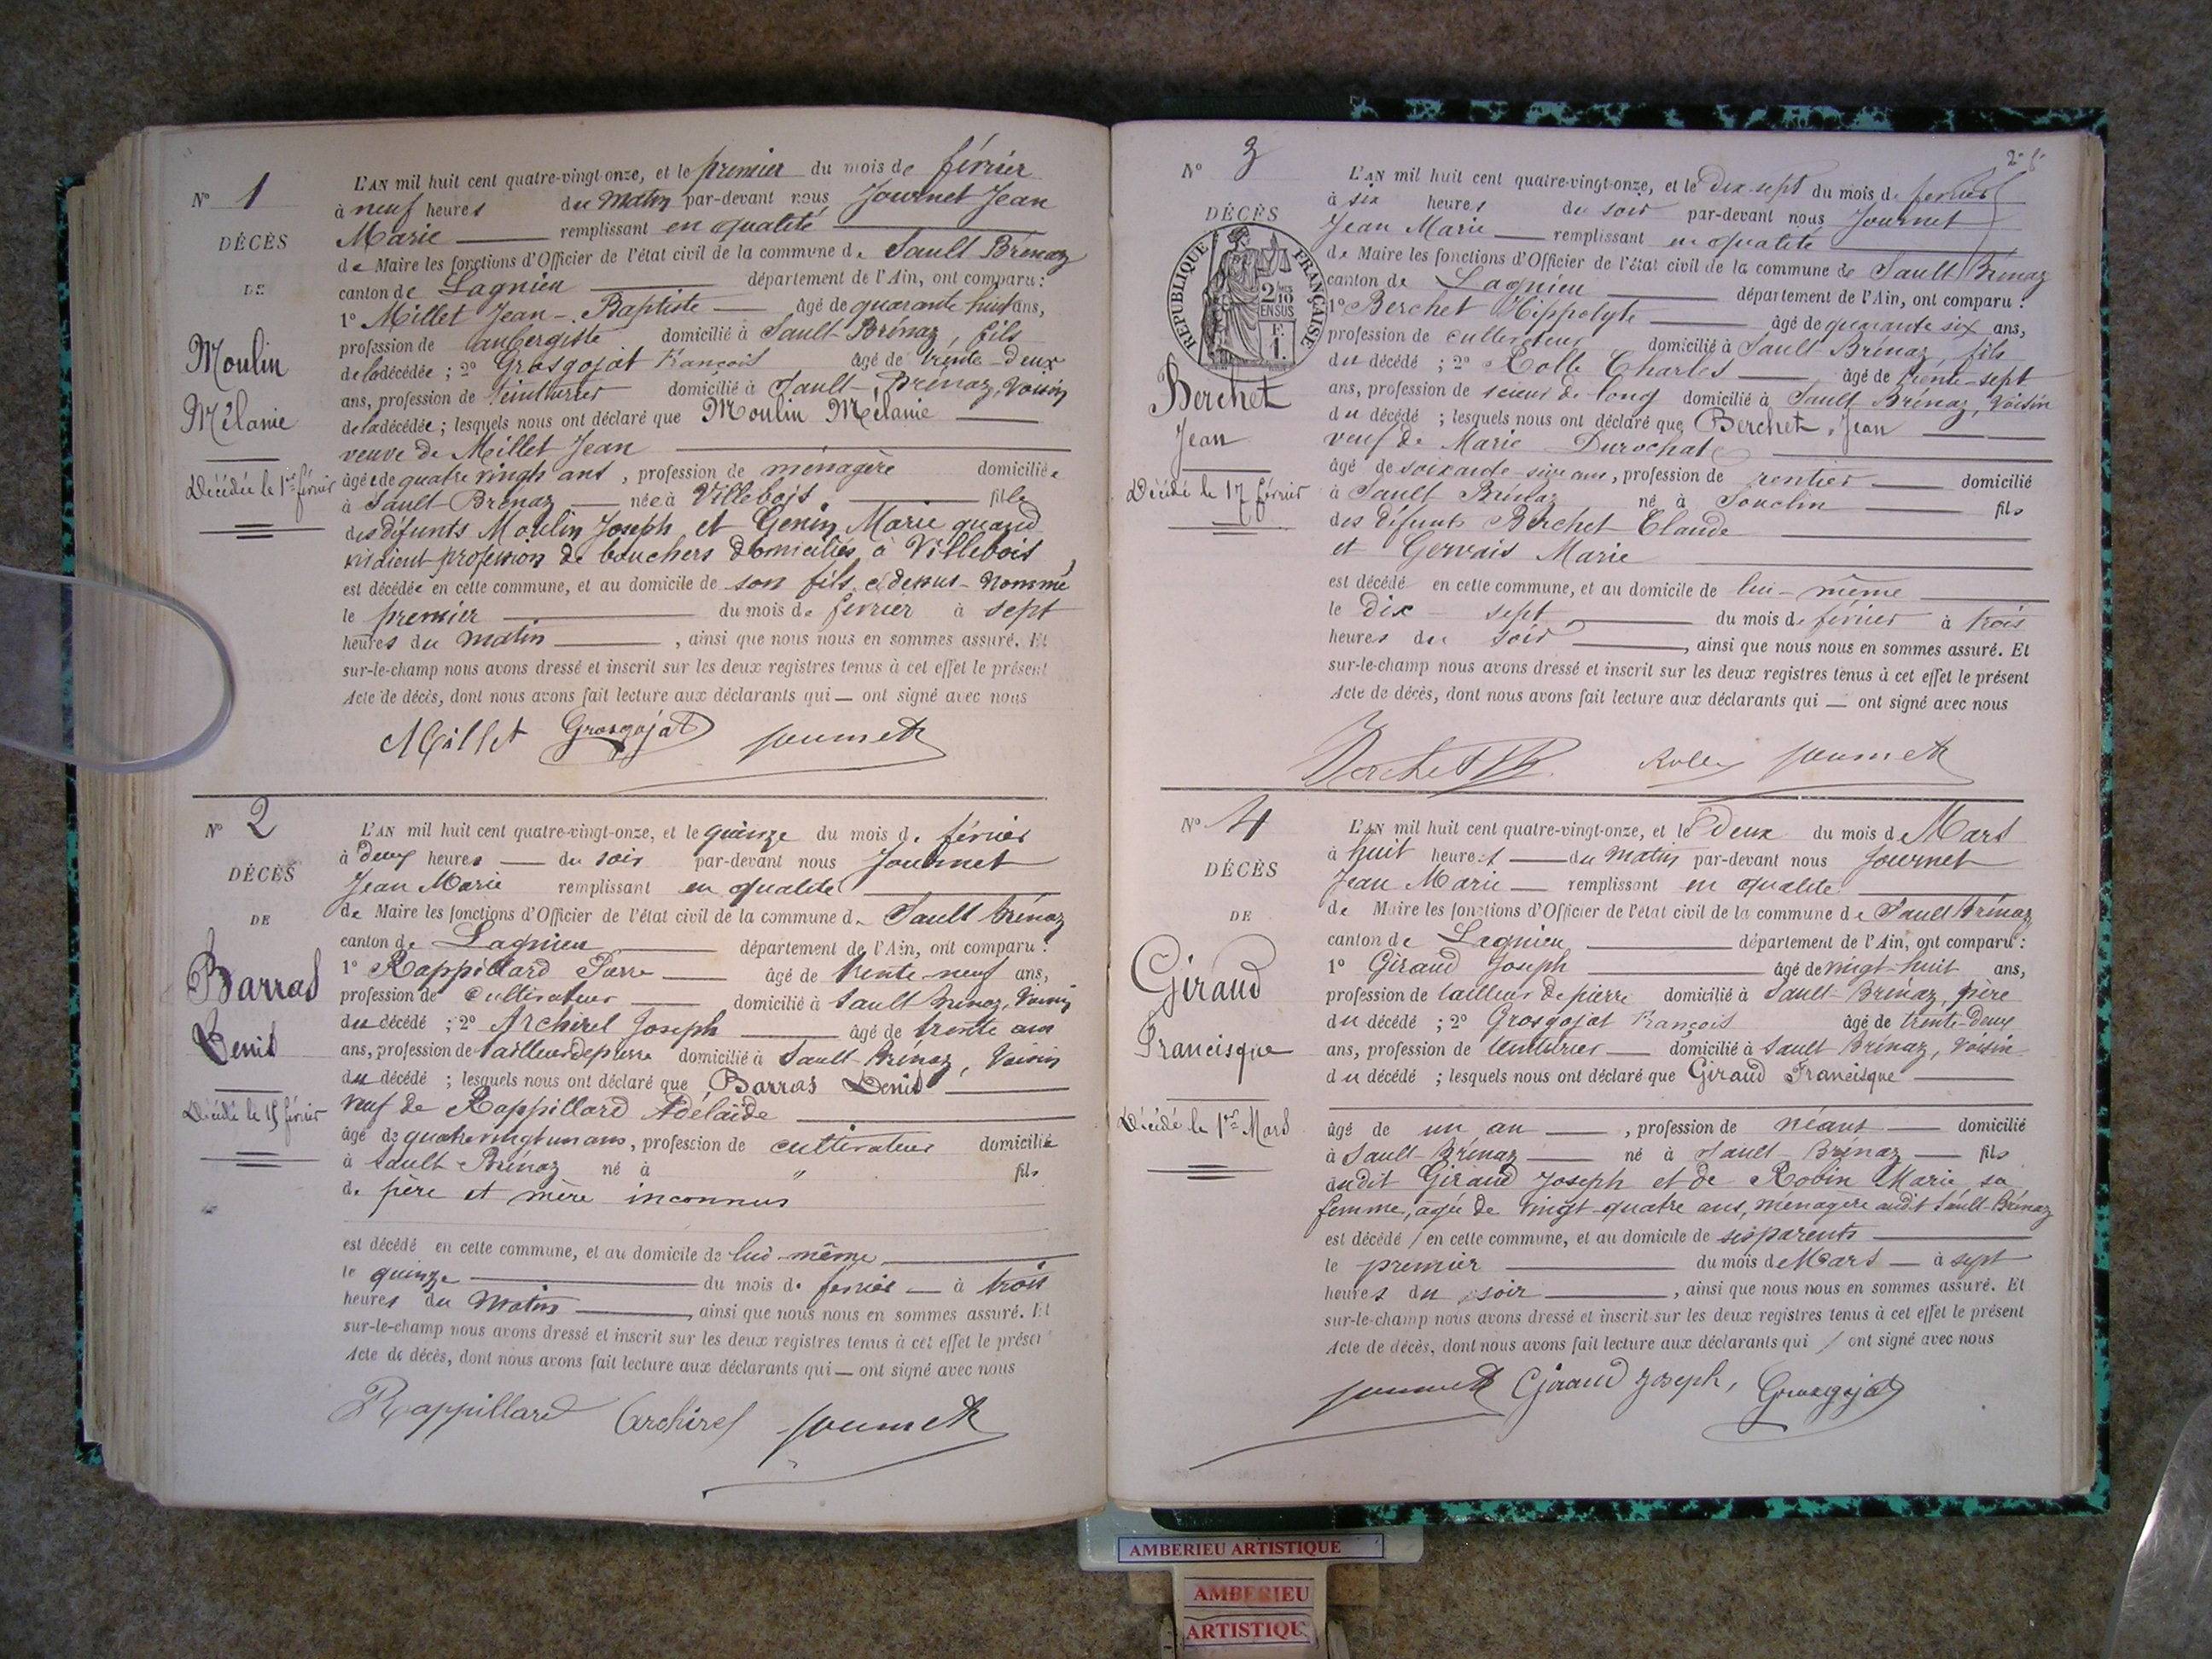 N° 1
DÉCÈS
DE
Moulin
Mélanie
Décédée le 1er février
L'AN mil huit cent quatre-vingt-onze, et le premier du mois de février
à neuf heures du matin par-devant nous Journet Jean
Marie remplissant en qualité
de Maire les fonctions d'Officier de l'état civil de la commune de Sault Brénaz
canton de Lagnieu département de l'Ain, ont comparu :
1° Millet Jean-Baptiste âgé de quarante huit ans,
profession de aubergiste domicilié à Sault-Brénaz, fils
de la décédée ; 2° Grosgojat François âgé de trente-deux
ans, profession de teinturier domicilié à Sault-Brénaz, voisin
de la décédée ; lesquels nous ont déclaré que Moulin Mélanie
veuve de Millet Jean
âgée de quatre vingts ans, profession de ménagère domiciliée
à Sault-Brénaz née à Villebois fille
des défunts Moulin Joseph et Genin Marie quand
vivaient profession de bouchers domiciliés à Villebois
est décédée en cette commune, et au domicile de son fils ci-dessus nommé
le premier du mois de février à sept
heures du matin, ainsi que nous nous en sommes assuré. Et
sur-le-champ nous avons dressé et inscrit sur les deux registres tenus à cet effet le présent
Acte de décès, dont nous avons fait lecture aux déclarants qui — ont signé avec nous
Millet Grosgojat Journet
N° 2
DÉCÈS
DE
Barras
Denis
Décédé le 15 février
L'AN mil huit cent quatre-vingt-onze, et le quinze du mois de février
à deux heures du soir par-devant nous Journet
Jean Marie remplissant en qualité
de Maire les fonctions d'Officier de l'état civil de la commune de Sault Brénaz
canton de Lagnieu département de l'Ain, ont comparu :
1° Rappillard Pierre âgé de trente-neuf ans,
profession de cultivateur domicilié à Sault Brénaz, voisin
du décédé ; 2° Archirel Joseph âgé de trente ans
ans, profession de tailleur de pierre domicilié à Sault-Brénaz, voisin
du décédé ; lesquels nous ont déclaré que Barras Denis
veuf de Rappillard Adélaïde
âgé de quatre vingt un ans, profession de cultivateur domicilié
à Sault-Brénaz né à " fils
de père et mère inconnus
est décédé en cette commune, et au domicile de lui-même
le quinze du mois de février à trois
heures du matin, ainsi que nous nous en sommes assuré. Et
sur-le-champ nous avons dressé et inscrit sur les deux registres tenus à cet effet le présent
Acte de décès, dont nous avons fait lecture aux déclarants qui — ont signé avec nous
Rappillard Archirel Journet
N° 3
DÉCÈS
RÉPUBLIQUE FRANÇAISE
2/10 EN SUS
F. 1.
Berchet
Jean
Décédé le 17 février
L'AN mil huit cent quatre-vingt-onze, et le dix-sept du mois de février
à six heures du soir par-devant nous Journet
Jean Marie remplissant en qualité
de Maire les fonctions d'Officier de l'état civil de la commune de Sault Brénaz
canton de Lagnieu département de l'Ain, ont comparu :
1° Berchet Hippolyte âgé de quarante six ans,
profession de cultivateur domicilié à Sault-Brénaz, fils
du décédé ; 2° Rolle Charles âgé de trente-sept
ans, profession de scieur de long domicilié à Sault-Brénaz, voisin
du décédé ; lesquels nous ont déclaré que Berchet Jean
veuf de Marie Durochat
âgé de ans, profession de rentier domicilié
à Sault Brénaz né à Souclin fils
des défunts Berchet Claude
et Gervais Marie
est décédé en cette commune, et au domicile de lui-même
le dix-sept du mois de février à trois
heures du soir, ainsi que nous nous en sommes assuré. Et
sur-le-champ nous avons dressé et inscrit sur les deux registres tenus à cet effet le présent
Acte de décès, dont nous avons fait lecture aux déclarants qui — ont signé avec nous
Berchet Rolle Journet
N° 4
DÉCÈS
DE
Giraud
Francisque
Décédé le 1er Mars
L'AN mil huit cent quatre-vingt-onze, et le deux du mois de Mars
à huit heures du matin par-devant nous Journet
Jean Marie remplissant en qualité
de Maire les fonctions d'Officier de l'état civil de la commune de Sault Brénaz
canton de Lagnieu département de l'Ain, ont comparu :
1° Giraud Joseph âgé de vingt-huit ans,
profession de tailleur de pierre domicilié à Sault-Brénaz, père
du décédé ; 2° Grosgojat François âgé de trente-deux
ans, profession de teinturier domicilié à Sault Brénaz, voisin
du décédé ; lesquels nous ont déclaré que Giraud Francisque
âgé de un an, profession de néant domicilié
à Sault-Brénaz né à Sault-Brénaz fils
dudit Giraud Joseph et de Robin Marie sa
femme, âgée de vingt-quatre ans, ménagère audit Sault-Brénaz
est décédé / en cette commune, et au domicile de ses parents
le premier du mois de Mars à sept
heures du soir, ainsi que nous nous en sommes assuré. Et
sur-le-champ nous avons dressé et inscrit sur les deux registres tenus à cet effet le présent
Acte de décès, dont nous avons fait lecture aux déclarants qui / ont signé avec nous
Journet Giraud Joseph, Grosgojat
AMBERIEU ARTISTIQUE
AMBERIEU
ARTISTIQU